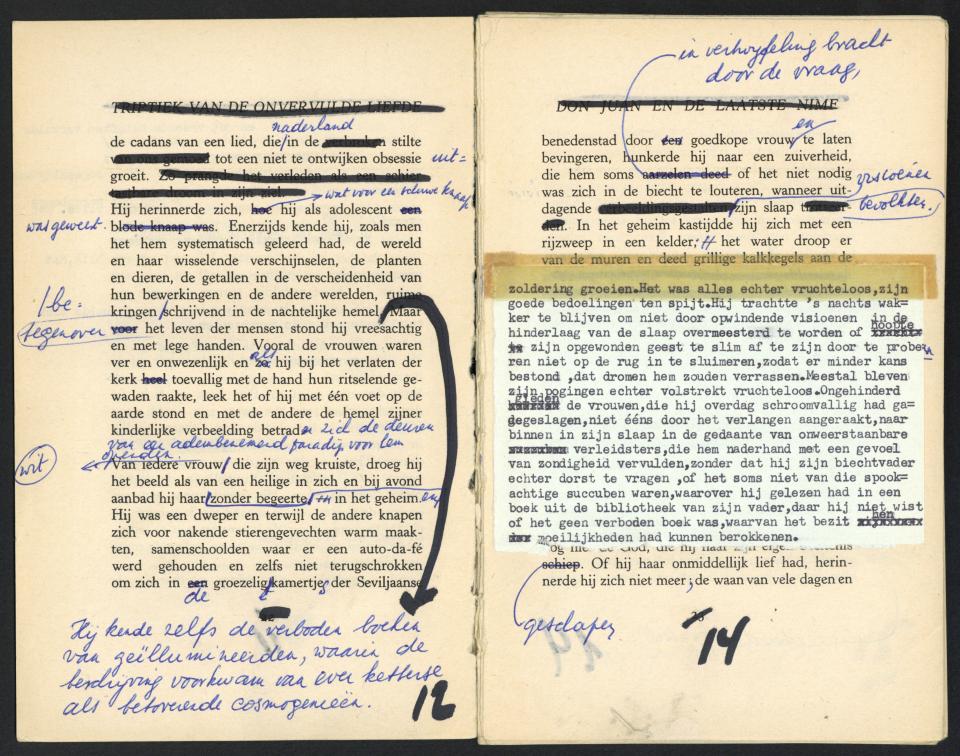 TRIPTIEK VAN DE ONVERVULDE LIEFDE
naderland
de cadans van een lied, die/in de verbroken stilte
van ons gemoed tot een niet te ontwijken obsessie uit=
groeit. Zo prangde het verleden als een schier
tastbare droom in zijn ziel.
wat voor een schuwe knaap
Hij herinnerde zich, hoe hij als adolescent een
was geweest. blode knaap was. Enerzijds kende hij, zoals men
het hem systematisch geleerd had, de wereld
en haar wisselende verschijnselen, de planten
en dieren, de getallen in de verscheidenheid van
hun bewerkingen en de andere werelden, ruime
/be=
kringen/schrijvend in de nachtelijke hemel. Maar
tegenover voor het leven der mensen stond hij vreesachtig
en met lege handen. Vooral de vrouwen waren
ver en onwezenlijk en zo als hij bij het verlaten der
kerk heel toevallig met de hand hun ritselende ge-
waden raakte, leek het of hij met één voet op de
aarde stond en met de andere de hemel zijner
kinderlijke verbeelding betrad en zich de deuren
van een adembenemend paradijs voor hem
openden.
wit
Van iedere vrouw/ die zijn weg kruiste, droeg hij
het beeld als van een heilige in zich en bij avond
aanbad hij haar/zonder begeerte/ in het geheim en
Hij was een dweper en terwijl de andere knapen
zich voor nakende stierengevechten warm maak-
ten, samenschoolden waar er een auto-da-fé
werd gehouden en zelfs niet terugschrokken
om zich in een groezelig kamertje der Seviljaanse
de t s
Hij kende zelfs de verboden boeken
van geïllumineerden, waarin de
beschrijving voorkwam van even ketterse
als betoverende cosmogenieën.
12
in verhoyfeling bracht
door de vraag,
DON JUAN EN DE LAATSTE NIMF
en
benedenstad door een goedkope vrouw te laten
bevingeren, hunkerde hij naar een zuiverheid,
die hem soms aarzelen deed of het niet nodig
was zich in de biecht te louteren, wanneer uit-
visioenen
dagende verbeeldingsgestalten zijn slaap bevolkten.
In het geheim kastijdde hij zich met een
rijzweep in een kelder; het water droop er
van de muren en deed grillige kalkkegels aan de
zoldering groeien.Het was alles echter vruchteloos,zijn
goede bedoelingen ten spijt.Hij trachtte 's nachts wak=
ker te blijven om niet door opwindende visioenen in de
hinderlaag van de slaap overmeesterd te worden of hoopte
zijn opgewonden geest te slim af te zijn door te proberen
ren niet op de rug in te sluimeren,zodat er minder kans
bestond ,dat dromen hem zouden verrassen.Meestal bleven
zijn pogingen echter volstrekt vruchteloos.Ongehinderd
gleden
de vrouwen,die hij overdag schroomvallig had ga=
degeslagen,niet ééns door het verlangen aangeraakt,naar
binnen in zijn slaap in de gedaante van onweerstaanbare
verleidsters,die hem naderhand met een gevoel
van zondigheid vervulden,zonder dat hij zijn biechtvader
echter dorst te vragen ,of het soms niet van die spook=
achtige succuben waren,waarover hij gelezen had in een
boek uit de bibliotheek van zijn vader,daar hij niet wist
of het geen verboden boek was,waarvan het bezit hen
moeilijkheden had kunnen berokkenen.
schiep. Of hij haar onmiddellijk lief had, herin-
nerde hij zich niet meer; de waan van vele dagen en
geschapen
14